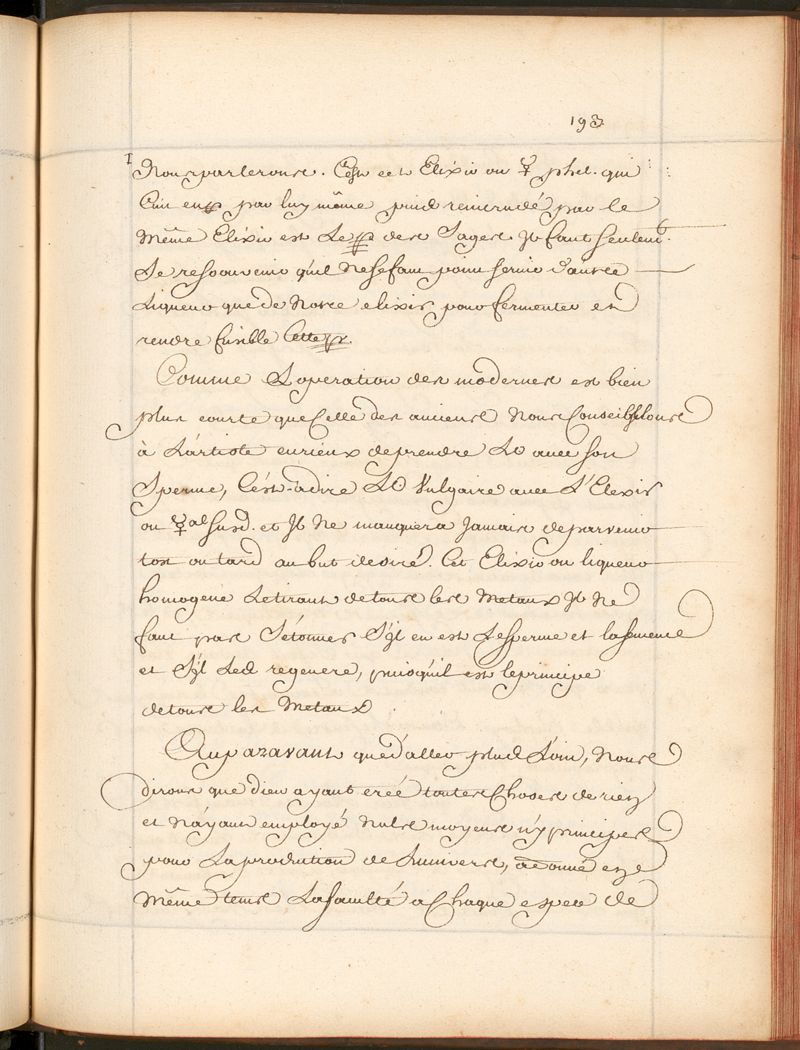 193
Nous parlerons. C'est cet Elixir ou ☿ phil. qui
Cuit en par luy même puis reincrudé par le
Même Elixir est Le des Sages. Jl faut seulemt.
Se ressouvenir qu'il Ne se faut point servir d'autre
Liqueur que de Notre elixir pour fermenter et
rendre fusible Cette
Comme L'operation des modernes est bien
plus courte que Celle des anciens Nous Conseillons
à L'artiste curieux de prendre L☉ avec son
Sperme, C'est-à dire L☉ Vulgaire avec L'Elexir
ou ☿al susd. et Jl Ne manquera Jamais de parvenir
tost ou tard au but desiré. Cet Elixir ou liqueur
homogene Se tirant de tous les Metaux Jl Ne
faut pas S'étonner S'jl en est Le sperme et la semence
et S'jl Les regenere, puisqu'il est le principe
de tous les Metaux.
Auparavant que d'aller plus Loin, Nous
dirons que dieu ayant créé toutes Choses de rien
et N'ayant employé Nuls moyens n'y principes
pour La production de Lunivers, a donné en
Même tems La faculté a Chaque espece de